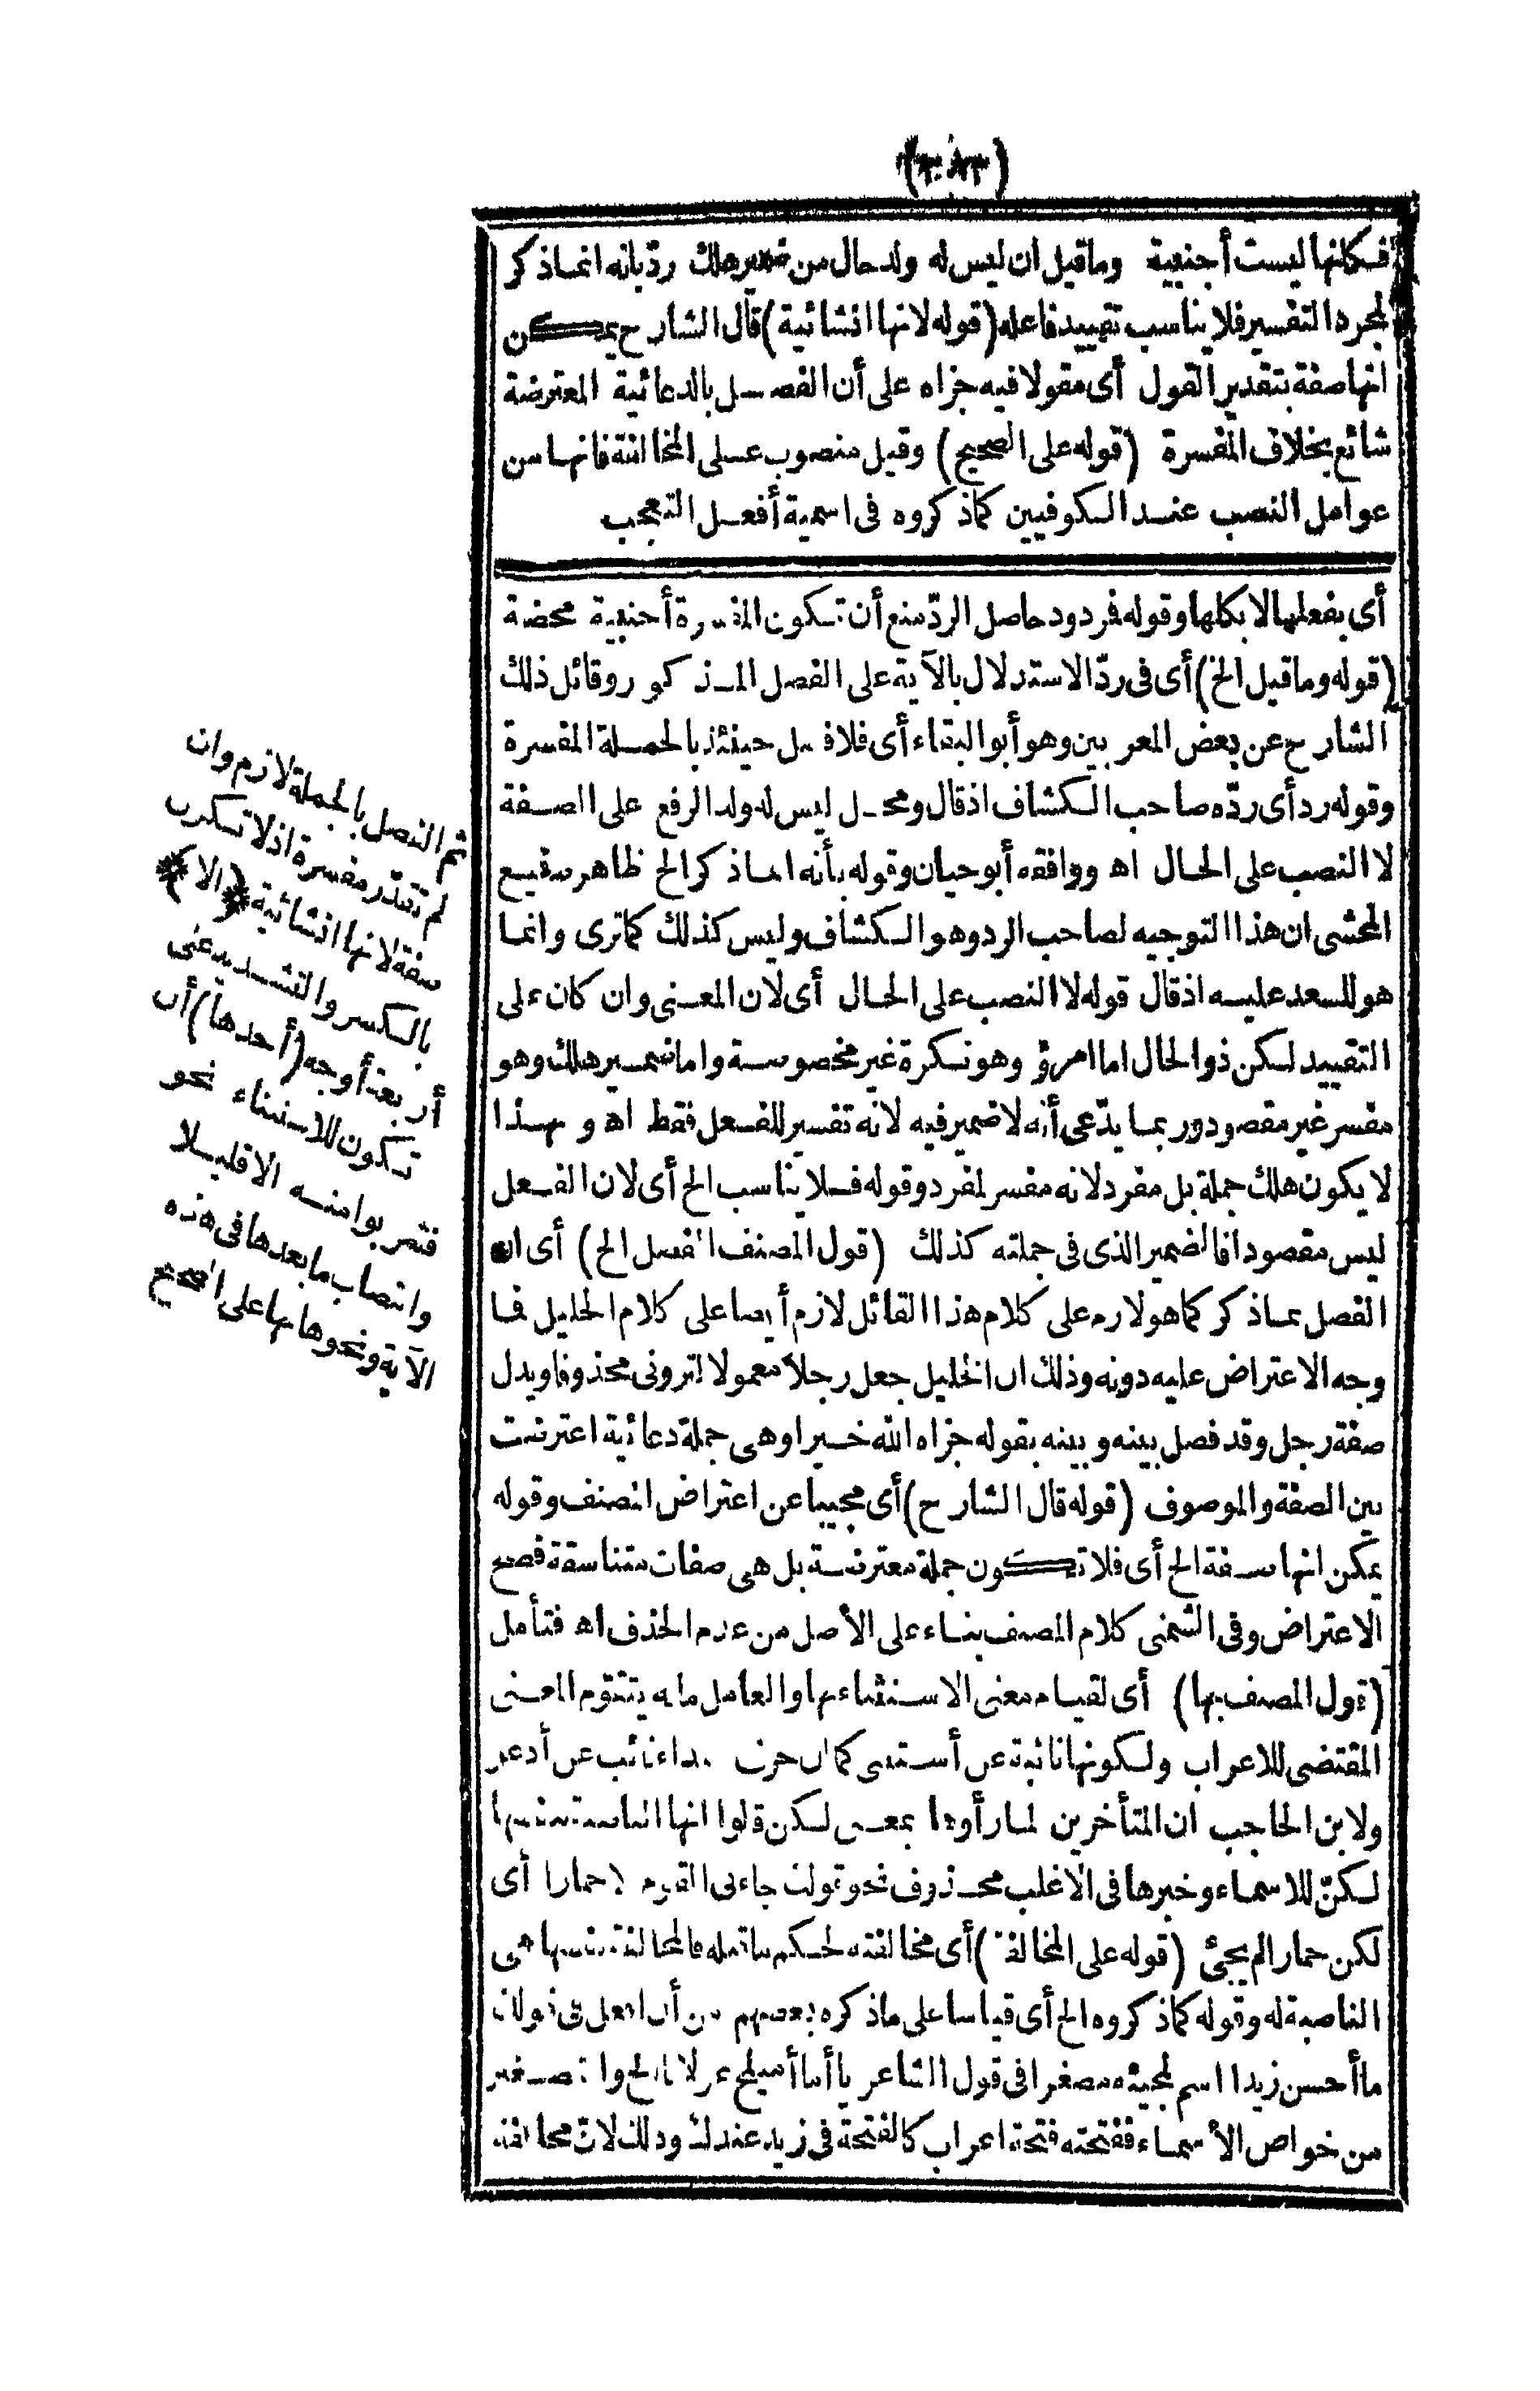 فكانها ليست أجنبية وما قيل ان ليس له ولد حال من ضمير هلك ردّ بانه انما ذكر
لمجرد التفسير فلا يناسب تقييد فاعله (قوله لانها انشائية) قال الشارح يمكن
انها صفة بتقدير القول أى مقولا فيه جزاه على أن الفصل بالدعائية المعترضة
شائع بخلاف المفسرة (قوله على الصحيح) وقيل منصوب على المخالفة فانها من
عوامل النصب عند الكوفيين كما ذكروه فى اسمية أفعل التعجب
أى بفعلها لا بكلها وقوله فردود حاصل الردّ منع أن تكون المفسرة أجنبية محضة
(قوله وما قيل الخ) أى فى ردّ الاستدلال بالآية على الفصل المذكور وقائل ذلك
الشارح عن بعض المعربين وهو أبو البقاء أى فلا فصل حينئذ بالجملة المفسرة
وقوله رد أى ردّه صاحب الكشاف اذ قال ومحل ليس له ولد الرفع على الصفة
لا النصب على الحال اه ووافقه أبو حيان وقوله بأنه انما ذكر الخ ظاهر صنيع
المحشى ان هذا التوجيه لصاحب الرد وهو الكشاف وليس كذلك كما ترى وانما
هو للسعد عليه اذ قال قوله لا النصب على الحال أى لان المعنى وان كان على
التقييد لكن ذو الحال اما امرؤ وهو نكرة غير مخصوصة واما ضمير هلك وهو
مفسر غير مقصود وربما يدّعى أنه لا ضمير فيه لانه تفسير للفعل فقط اه وبهذا
لا يكون هلك جملة بل مفرد لانه مفسر لمفرد وقوله فلا يناسب الخ أى لان الفعل
ليس مقصودا فالضمير الذى فى جملته كذلك (قول المصنف الفصل الخ) أى ان
الفصل بما ذكر كما هو لازم على كلام هذا القائل لازم أيضا على كلام الخليل فما
وجه الاعتراض عليه دونه وذلك ان الخليل جعل رجلا معمولا لترونى محذوفا ويدل
صفة رجل وقد فصل بينه وبينه بقوله جزاه الله خيرا وهى جملة دعائية اعترضت
بين الصفة والموصوف (قوله قال الشارح) أى مجيبا عن اعتراض المصنف وقوله
يمكن انها صفة الخ أى فلا تكون جملة معترضة بل هى صفات متناسقة فصح
الاعتراض وفى الشمنى كلام المصنف بناء على الأصل من عدم الحذف اه فتأمل
(قول المصنف بها) أى لقيام معنى الاستثناء بها والعامل ما به يتقوم المعنى
المقتضى للاعراب ولكونها نائبة عن أستثنى كما ان حرف النداء نائب عن أدعو
ولابن الحاجب ان المتأخرين لما رأوها بمعنى لكن قالوا انها الناصبة بنفسها
لكنّ للاسماء وخبرها فى الاغلب محذوف نحو قولك جاءنى القوم الا حمارا أى
لكن حمارا لم يجئ (قوله على المخالفة) أى مخالفته لحكم ما قبله فالمخالفة نفسها هى
الناصبة له وقوله كما ذكروه الخ أى قياسا على ما ذكره بعضهم من أن افعل فى قولك
ما أحسن زيدا اسم لمجيئه مصغرا فى قول الشاعر يا أما أميلح غزلانا الخ والتصغير
من خواص الأسماء ففتحته فتحة اعراب كالفتحة فى زيد عندك وذلك لان مخالفة
ثم الفصل بالجملة لازم وان
لم تقدّر مفسرة اذ لا تكون
صفة لانها انشائية (الا)
بالكسر والتشديد على
أربعة أوجه (أحدها) أن
تكون للاستثناء نحو
فشربوا منه الا قليلا
وانتصاب ما بعدها فى هذه
الآية ونحوها بها على الصحيح